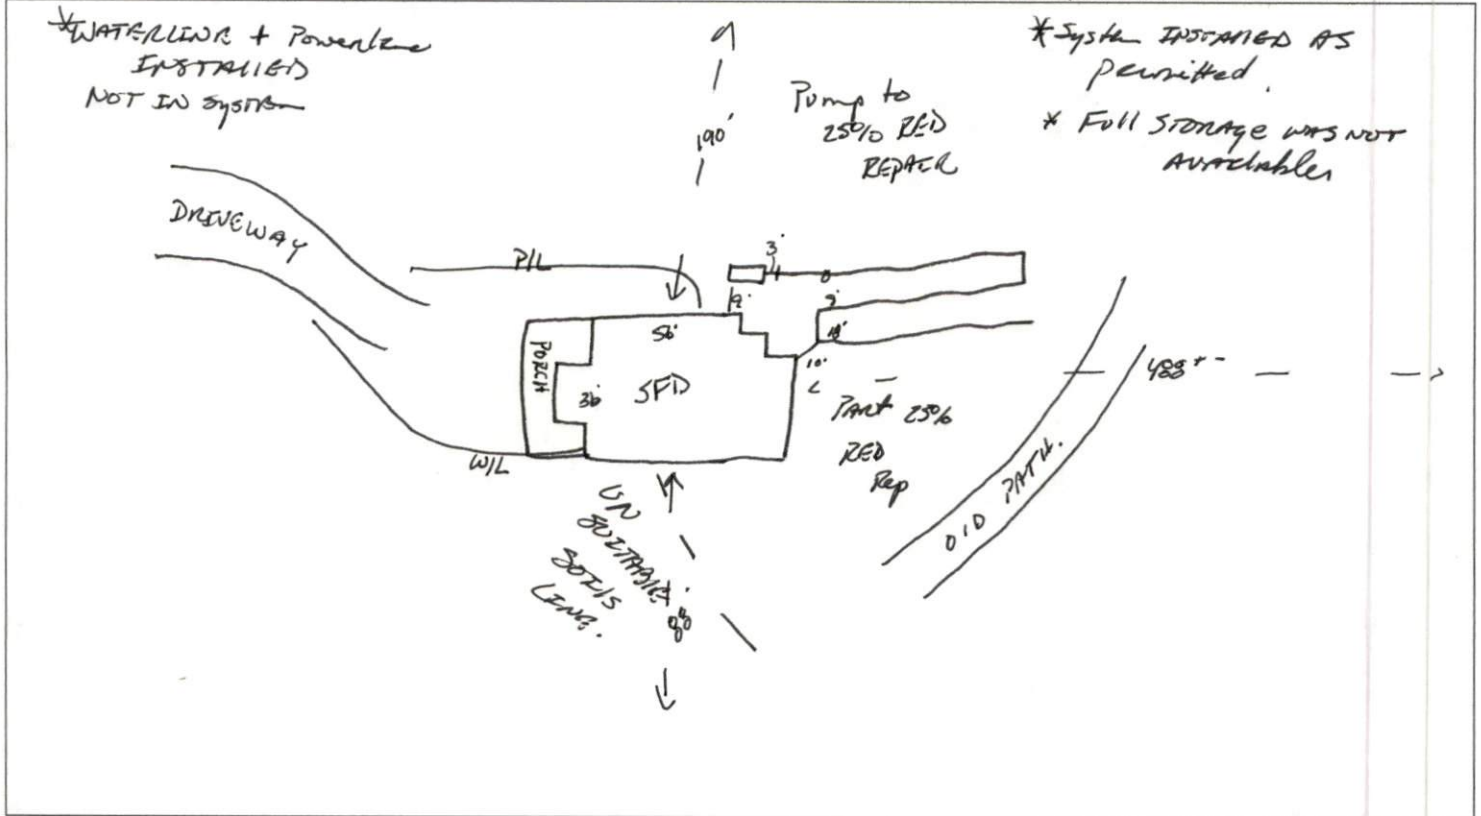 *WATERLINE + Powerline
INSTALLED
NOT IN SYSTEM
190'
Pump to
25% RED
REPAIR
*System INSTALLED AS
permitted.
* Full STORAGE WAS NOT
AVAILABLE
DRIVEWAY
P/L
3'
9'
9'
56'
10'
PORCH
36'
SFD
488+-
PART 25%
RED
Rep
W/L
OLD PATH.
UN
SUITABLE
SOILS
LINE.
88'